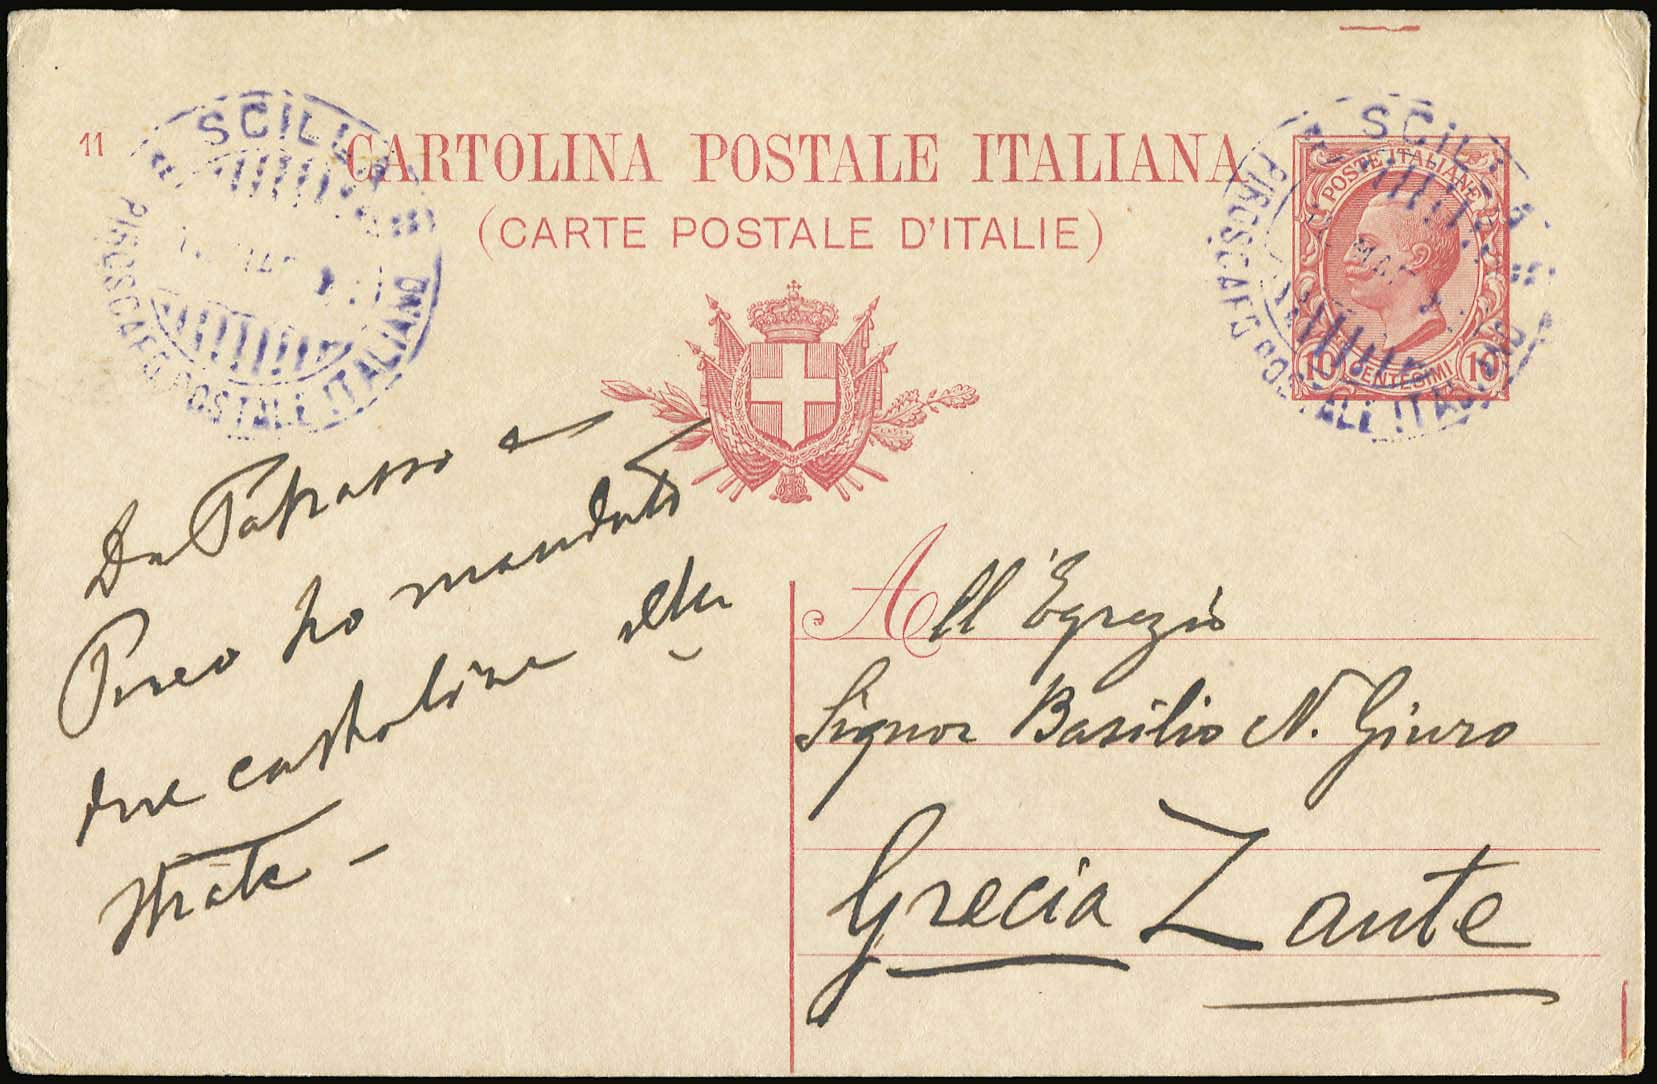 11
CARTOLINA POSTALE ITALIANA
(CARTE POSTALE D'ITALIE)
SCILLA
PIROSCAFO POSTALE ITALIANO
SCILLA
PIROSCAFO POSTALE ITALIANO
MAR
POSTE ITALIANE
10 CENTESIMI 10
Da Patrasso e
Pireo ho mandato
due cartoline illu
strate –
All'Egregio
Signor Basilio N.
Grecia Zante